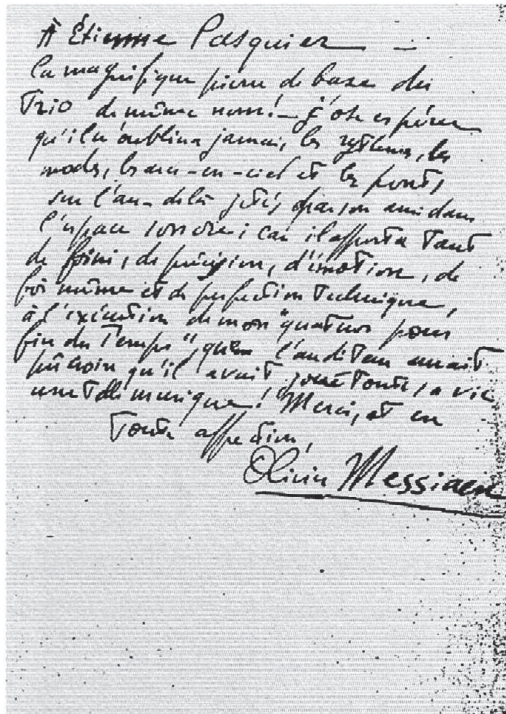 À Étienne Pasquier —
la magnifique pierre de base du
Trio du même nom! — J'ose espérer
qu'il n'oubliera jamais, les rythmes, les
modes, les arcs-en-ciel et les ponts
sur l'au-delà jetés par son ami dans
l'espace sonore; car il apporta tant
de fini, de précision, d'émotion, de
foi même et de perfection technique,
à l'exécution de mon "quatuor pour la
fin du Temps", que l'auditeur aurait
pu croire qu'il avait joué toute sa vie
une telle musique! Merci, et en
toute affection,
Olivier Messiaen